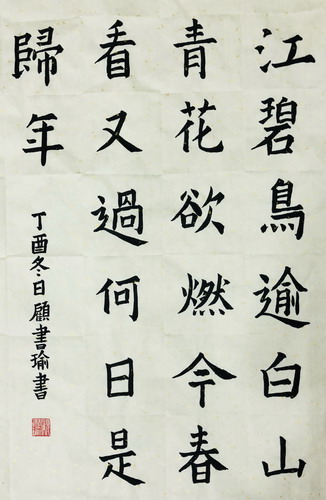 江碧鳥逾白山
青花欲燃今春
看又過何日是
歸年
丁酉冬日顧書瑜書